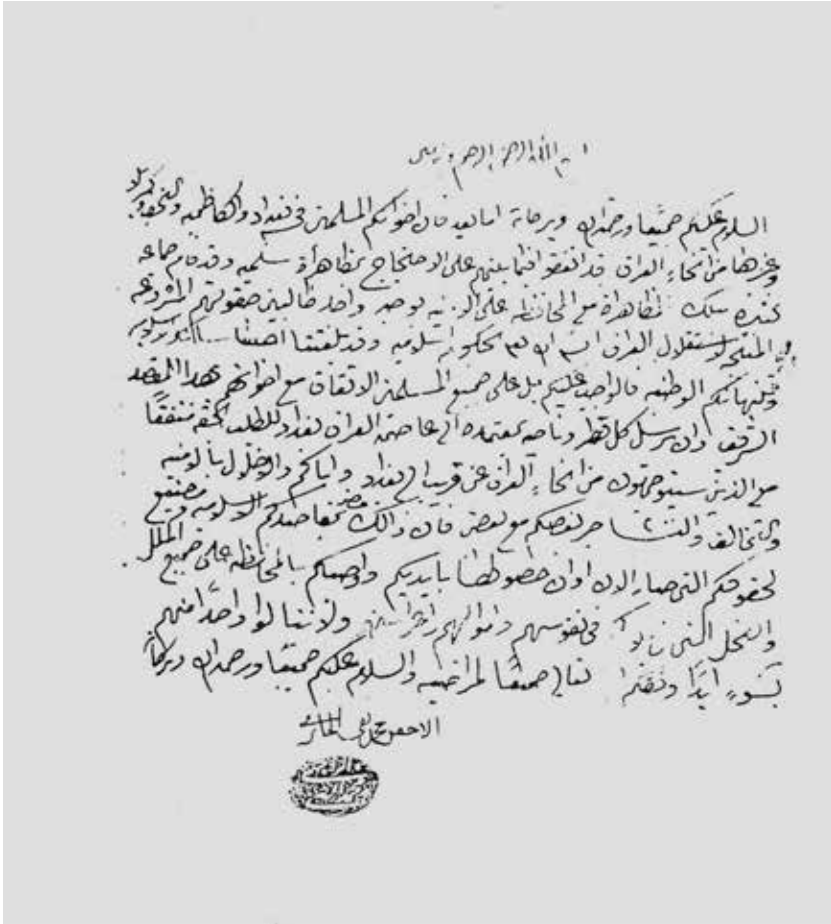 بسم الله الرحمن الرحيم
السلام عليكم جميعا ورحمة الله وبركاته اما بعد فان اخوانكم المسلمين في بغداد والكاظمية والنجف وكربلا
وغيرها من انحاء العراق قد اتفقوا فيما بينهم على الاحتجاج بمظاهرة سلمية وقد قام جماعة
كثيرة بتلك المظاهرة مع المحافظة على الامنية طالبين حقوقهم المشروعة
المنتجة لاستقلال العراق ان شاء الله بحكومة اسلامية
الوطنية فالواجب عليكم بل على جميع المسلمين الاتفاق مع اخوانهم بهذا المقصد
الشريف وان يرسل كل قطر وناحية الى عاصمة العراق بغداد للطلب بحقه متفقا
مع الذين سيتوجهون من انحاء العراق عن قريب الى بغداد واياكم والاخلال بالامنية
والتخالف والتشاجر بعضكم مع بعض فان ذالك مضر بمقاصدكم ومضيع
لحقوقكم التي صار الان اوان حصولها بايديكم واوصيكم بالمحافظة على جميع الملل
والنحل التي في نفوسهم واموالهم واعراضهم ولا تنالوا واحدا منهم
بسوء ابدا تعالى جميعا لمراضيه والسلام عليكم جميعا ورحمة الله وبركاته
الاحقر محمد تقي الحائري